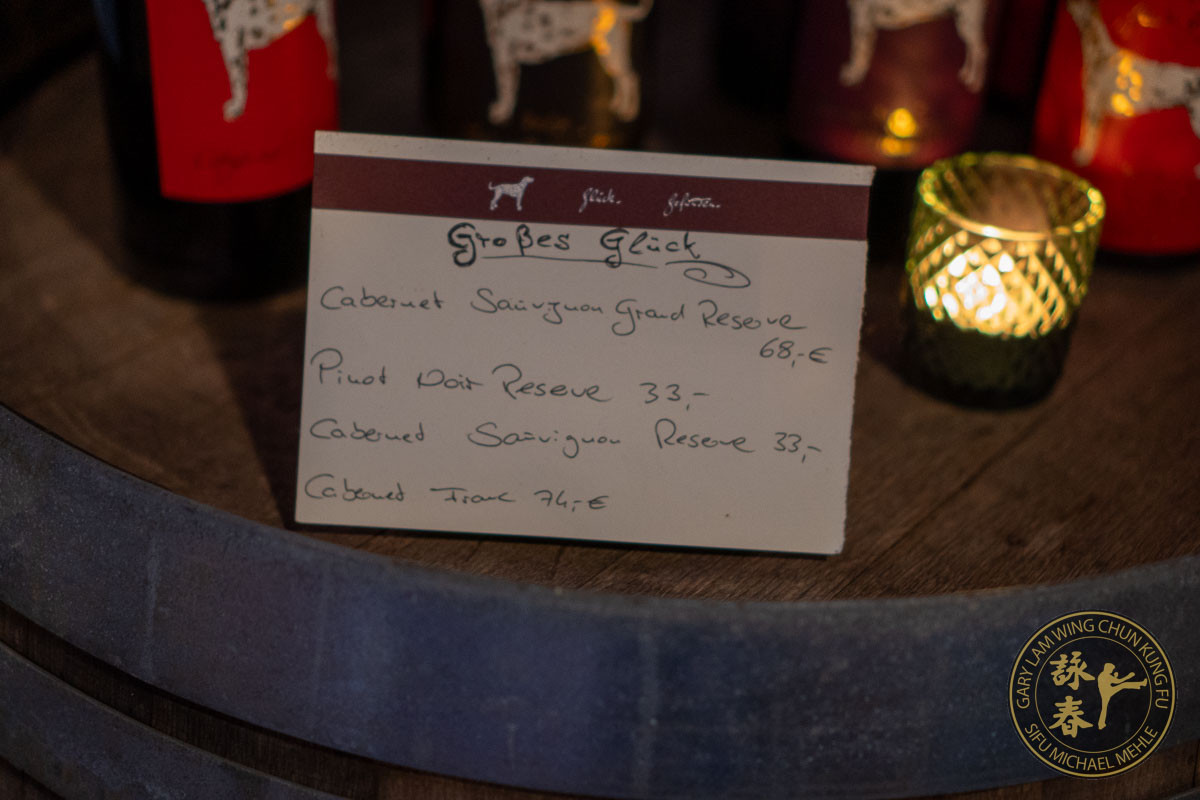 Glück. Gefunden.
Großes Glück
Cabernet Sauvignon Grand Reserve
68,-€
Pinot Noir Reserve 33,-
Cabernet Sauvignon Reserve 33,-
Cabernet Franc 74,-€
GARY LAM WING CHUN KUNG FU
詠春
SIFU MICHAEL MEHLE